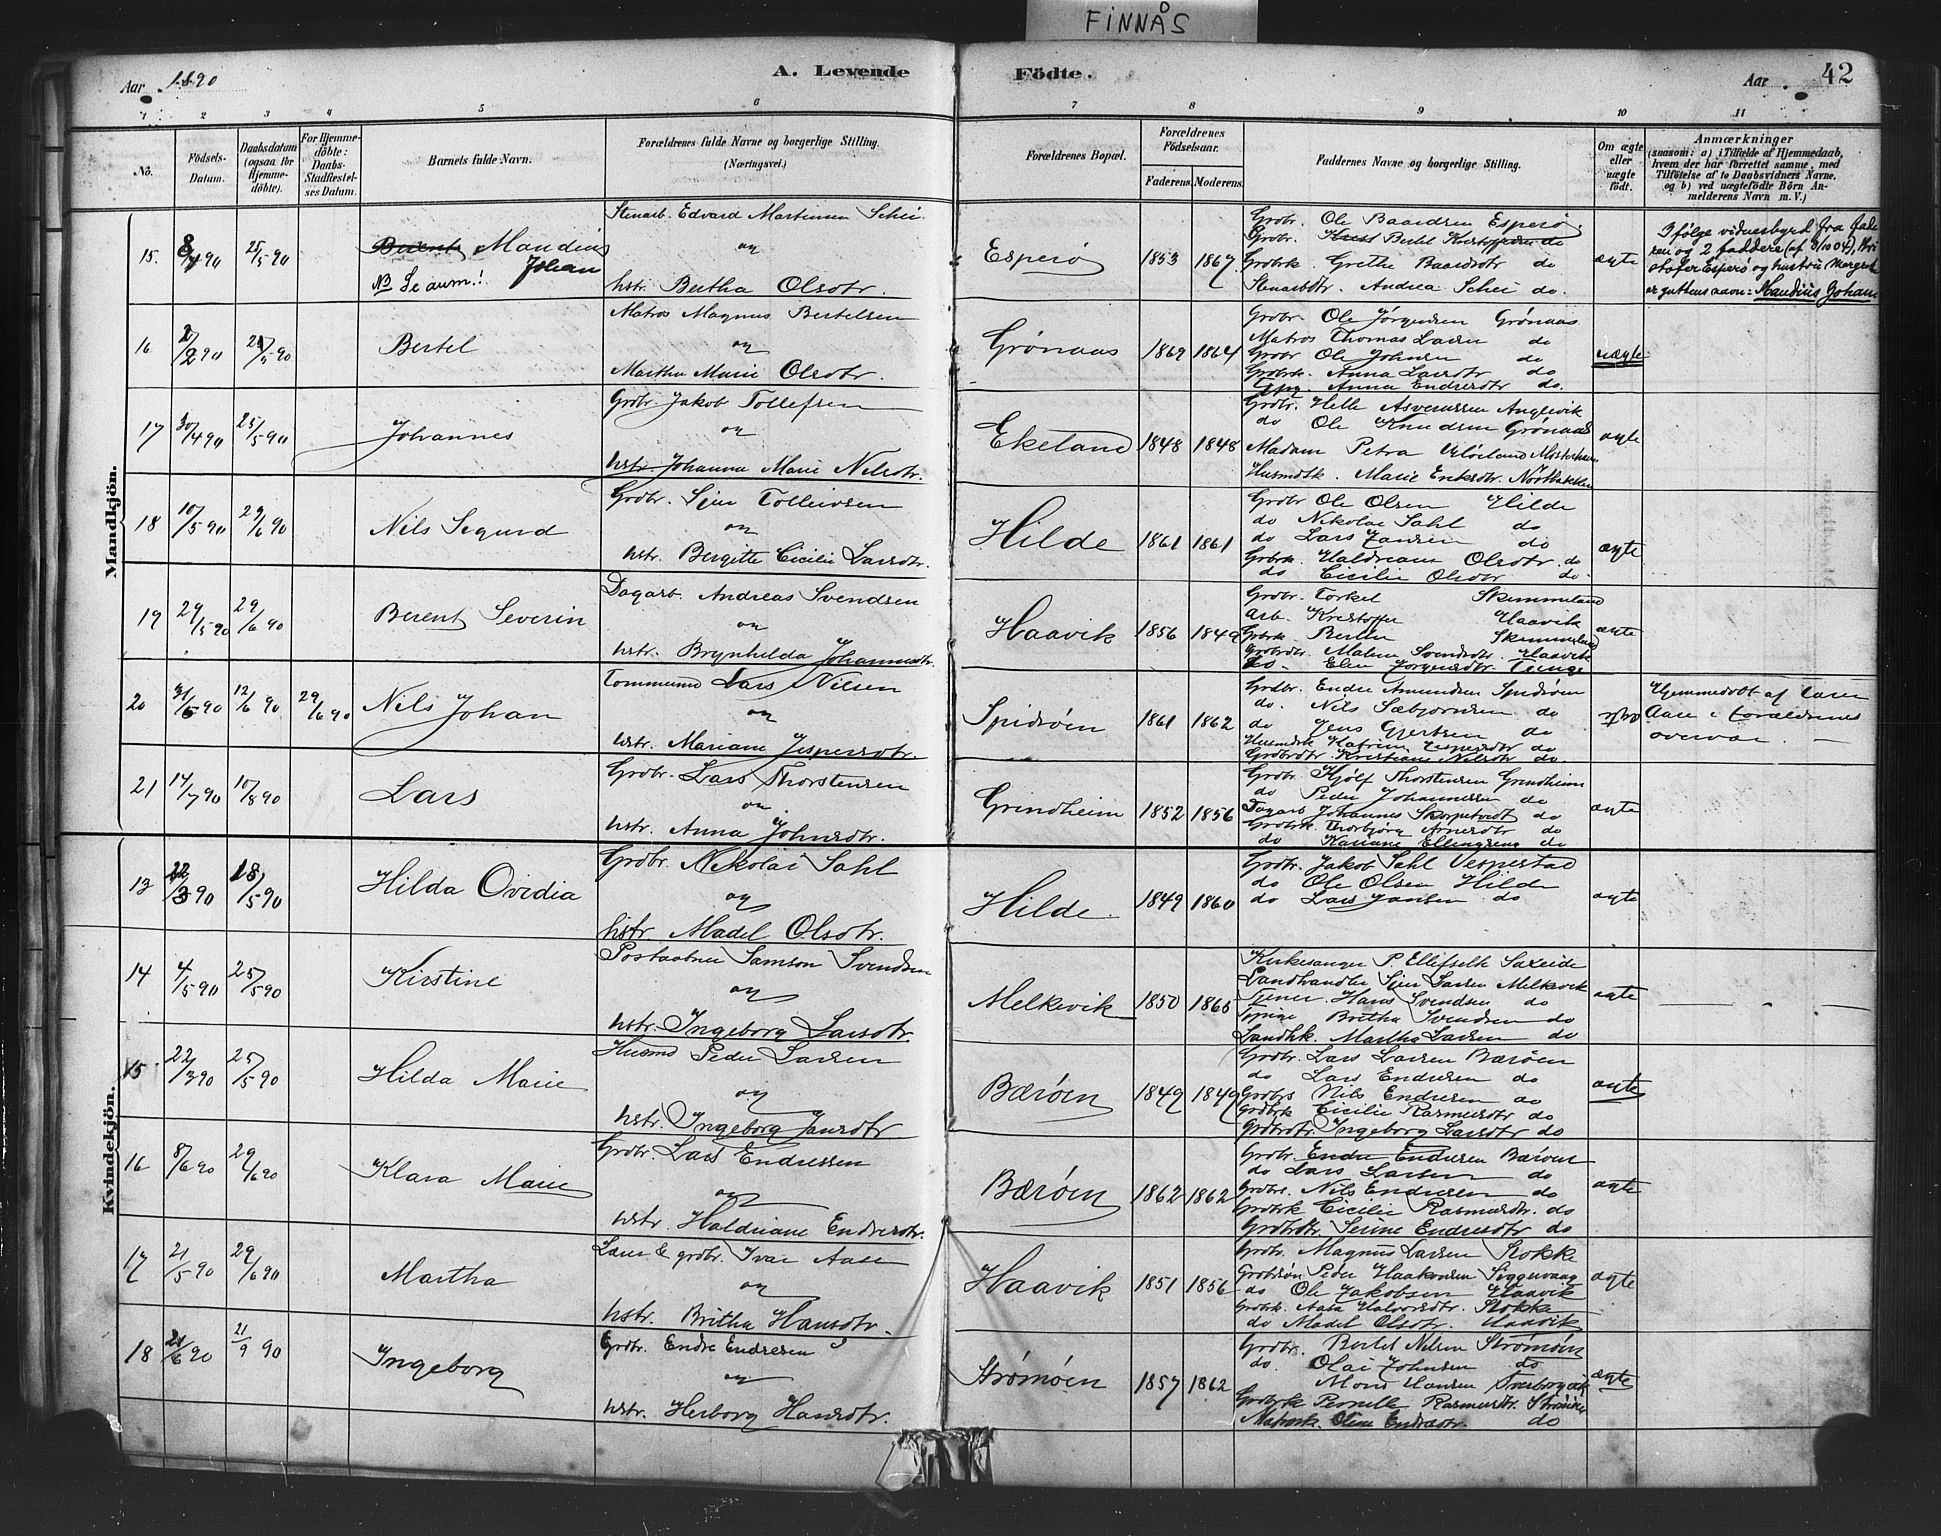 FINNÅS
Aar 1890
A. Levende Födte.
Aar
42
1 2 3 4 5 6 7 8 9 10 11
No.
Födsels-Datum.
Daabsdatum (ogsaa for Hjemme-döbte).
For Hjemme-döbte: Daabs-Stadfæstel-ses Datum.
Barnets fulde Navn.
Forældrenes fulde Navne og borgerlige Stilling. (Næringsvei.)
Forældrenes Bopæl.
Forældrenes Födselsaar.
Faderens. Moderens.
Faddernes Navne og borgerlige Stilling.
Om ægte eller uægte födt.
Anmærkninger
(saasom: a) i Tilfælde af Hjemmedaab, hvem der har forrettet samme, med Tilföielse af to Daabsvidners Navne, og b) ved uægtefödte Börn An-melderens Navn m. V.)
Mandkjön.
15. 8/4 90 25/5 90 Berent Maudius Johan
NB Se anm.!
Stenarb. Edvard Martinsen Schei
og
hstr. Bertha Olsdtr.
Esperö 1853 1867
Grdbr. Ole Baardsen Esperö
Grdbr. Knut Bertel Kristoffersen do
Grdbrk. Grethe Baardsdtr do
Stenarbdtr. Andrea Schei do.
ægte
Ifölge vidnesbyrd fra fade
ren og 2 faddere (af 3/10 04), Kri
stofer Esperö og hustru Margrete
er guttens navn: Maudius Johan
16 2/2 90 25/5 90 Bertel
Matros Magnus Bertelsen
og
Martha Marie Olsdtr.
Grönaas 1869 1864
Grdbr. Ole Jörgensen Grönaas
Matros Thomas Larsen do
Grdbr Ole Johnsen do
Grdbrk. Anna Larsdtr do
Anna Endresdtr do.
uægte
17 30/4 90 25/5 90 Johannes
Grdbr. Jakob Tollefsen
og
hstr. Johanna Marie Nilsdtr.
Ekeland 1848 1848
Grdbr. Helle Asversen Anglevik
do Ole Knudsen Grönaas
Madam Petra Mosterhavn
Husmdk. Marie Eriksdtr
ægte
18 10/5 90 29/6 90 Nils Sigurd
Grdbr. Sjur Tolleivsen
og
hstr. Bergitte Cicilie Larsdtr.
Hilde 1861 1861
Grdbr Ole Olsen Hilde
do Nikolai Sahl do
do Lars Jansen do
Grdbrk. Haldriane Olsdtr. do
do Cicilie Olsdtr do.
ægte
19 29/5 90 29/6 90 Berent Severin
Dagarb. Andreas Svendsen
og
hstr. Brynhilda Johannesdtr.
Haavik 1856 1849
Grdbr. Torkel Skimmeland
Arb. Kristoffer Haavik
Grdbrk. Skimmeland
Grdbrdtr. Malene Svendsdtr. Haavik
do. Elen Jörgensdtr.
ægte
20 31/5 90 12/6 90 29/6 90 Nils Johan
Tömmermd Lars Nilsen
og
hstr. Mariane Jespersdtr.
Spidsöen 1861 1862
Grdbr. Endre Amundsen Spidsöen
do. Nils Sæbjörnsen do
do Jens Gjertsen do
Husmdk Katrine Jespersdtr do
Grdbrdtr. Kristiane Nilsdtr do.
ægte
Hjemmedöbt af Lærer
Aase i forældrenes
overvær
21 17/7 90 10/8 90 Lars
Grdbr. Lars Thorstensen
og
hstr. Anna Johnsdtr.
Grindheim 1852 1856
Grdbr. Kjölf Thorstensen Grindheim
do Peder Johannessen do
Dagarb Johannes Skorpetvedt do
Grdbrk. Thorbjörg Arnesdtr do
do Kariane Ellingseng do
ægte
Kvindekjön.
13 22/3 90 18/5 90 Hilda Ovidia
Grdbr. Nikolai Sahl
og
hstr. Madel Olsdtr.
Hilde 1849 1860
Grdbr. Jakob Sahl Vespestad
do Ole Olsen Hilde
do Lars Jansen do
ægte
14 4/5 90 25/5 90 Kirstine
Postaabner Samson Svendsen
og
hstr. Ingeborg Larsdtr.
Melkevik 1850 1865
Kirkesanger P. Ellefseth Saxeide
Landhandler Sjur Larsen Melkevik
Tjener. Hans Svendsen do
Britha Svendsen do
Landhk. Martha Larsen do
ægte
15 22/3 90 25/5 90 Hilda Marie
Husmd Peder Larsen
og
hstr. Ingeborg Jansdtr
Bæröen 1849 1849
Grdbr. Lars Larsen Bæröen
do Lars Endresen do
Grdbrs Nils Endresen do
Grdbrk Cicilie Rasmusdtr do
Grdbrdtr. Ingeborg Larsdtr do
ægte
16 8/6 90 29/6 90 Klara Marie
Grdbr. Lars Endressen
og
hstr. Haldriane Endresdtr.
Bæröen 1862 1862
Grdbr. Endre Endresen Bæröen
do Lars Larsen do
Grdbrs. Nils Endresen do
Grdbrk Cicilie Rasmusdtr. do
Grdbrdtr. Serine Endresdtr do
ægte
17 21/5 90 29/6 90 Martha
Lærer & grdbr. Ivar Aase
og
hstr. Britha Hansdtr.
Haavik 1851 1856
Grdbr. Magnus Larsen Stokke
Grdbrsön Peder Haakonsen Siggervaag
do Ole Jakobsen Haavik
Grdbrk. Aasa Halvorsdtr. Stokke
do Madel Olsdtr. Haavik
ægte
18 21/6 90 21/9 90 Ingeborg
Grdbr. Endre Endresen
og
hstr. Herborg Hansdtr.
Strömöen 1857 1862
Grdbr. Bertel Nilsen Strömöen
do. Olai Johnsen do
Mons Hansen
Grdbrk Pernille Rasmusdtr. Strömöen
Matrosk. Oline Endresdtr. do
ægte